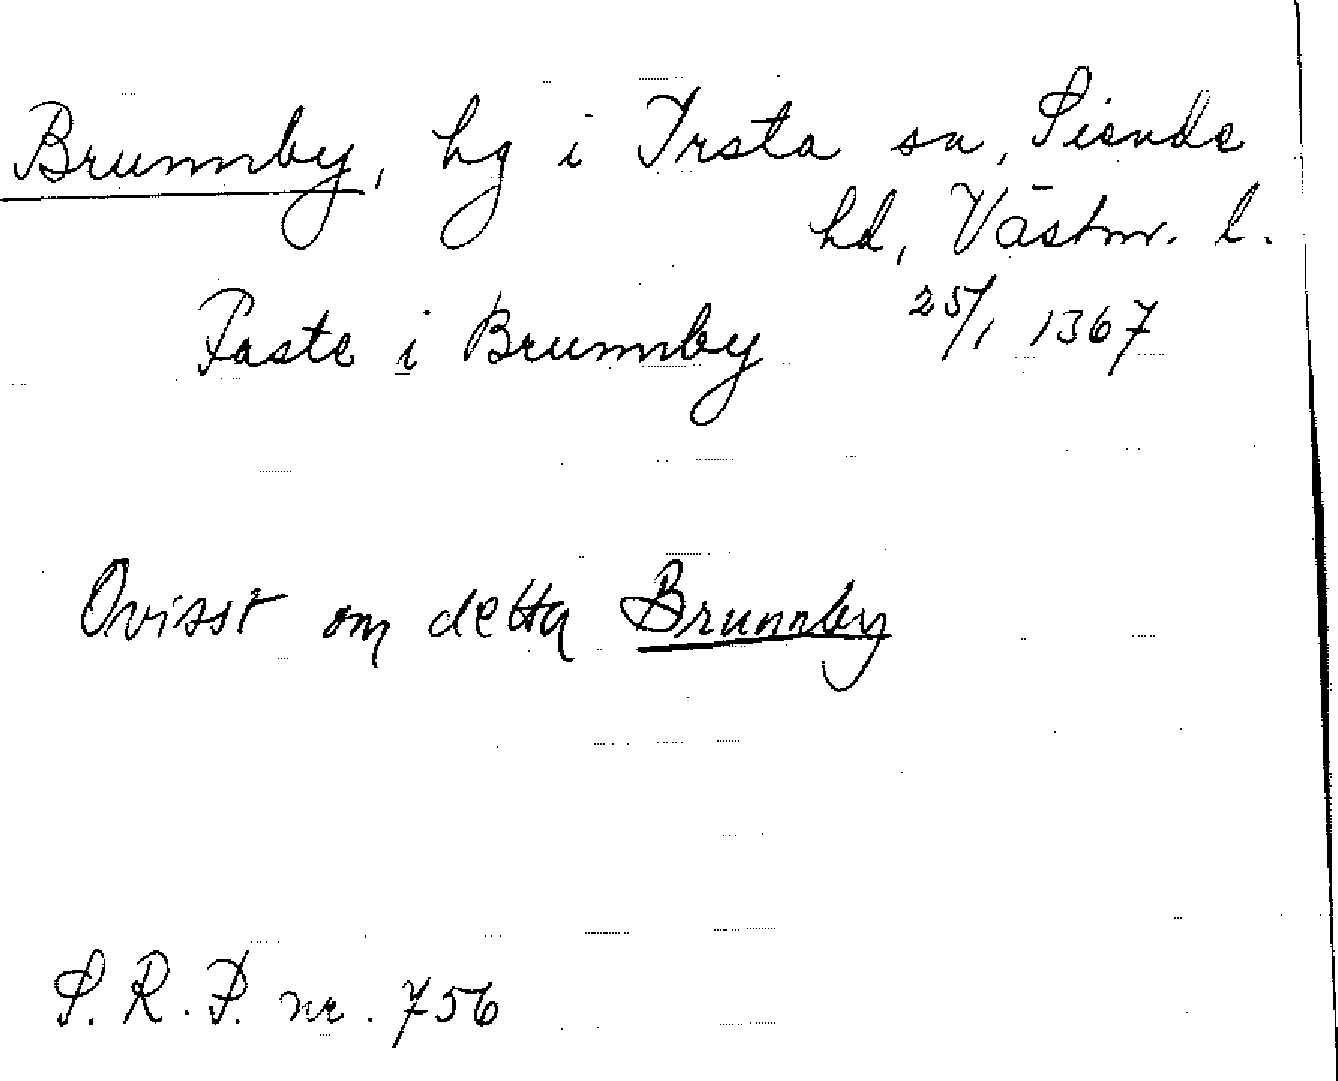 Brunnby, hg i Irsta sn, Siende
hd, Västm. l.
Faste i Brunnby 25/1 1367
Ovisst om detta Brunnby
S. R. P. nr. 756